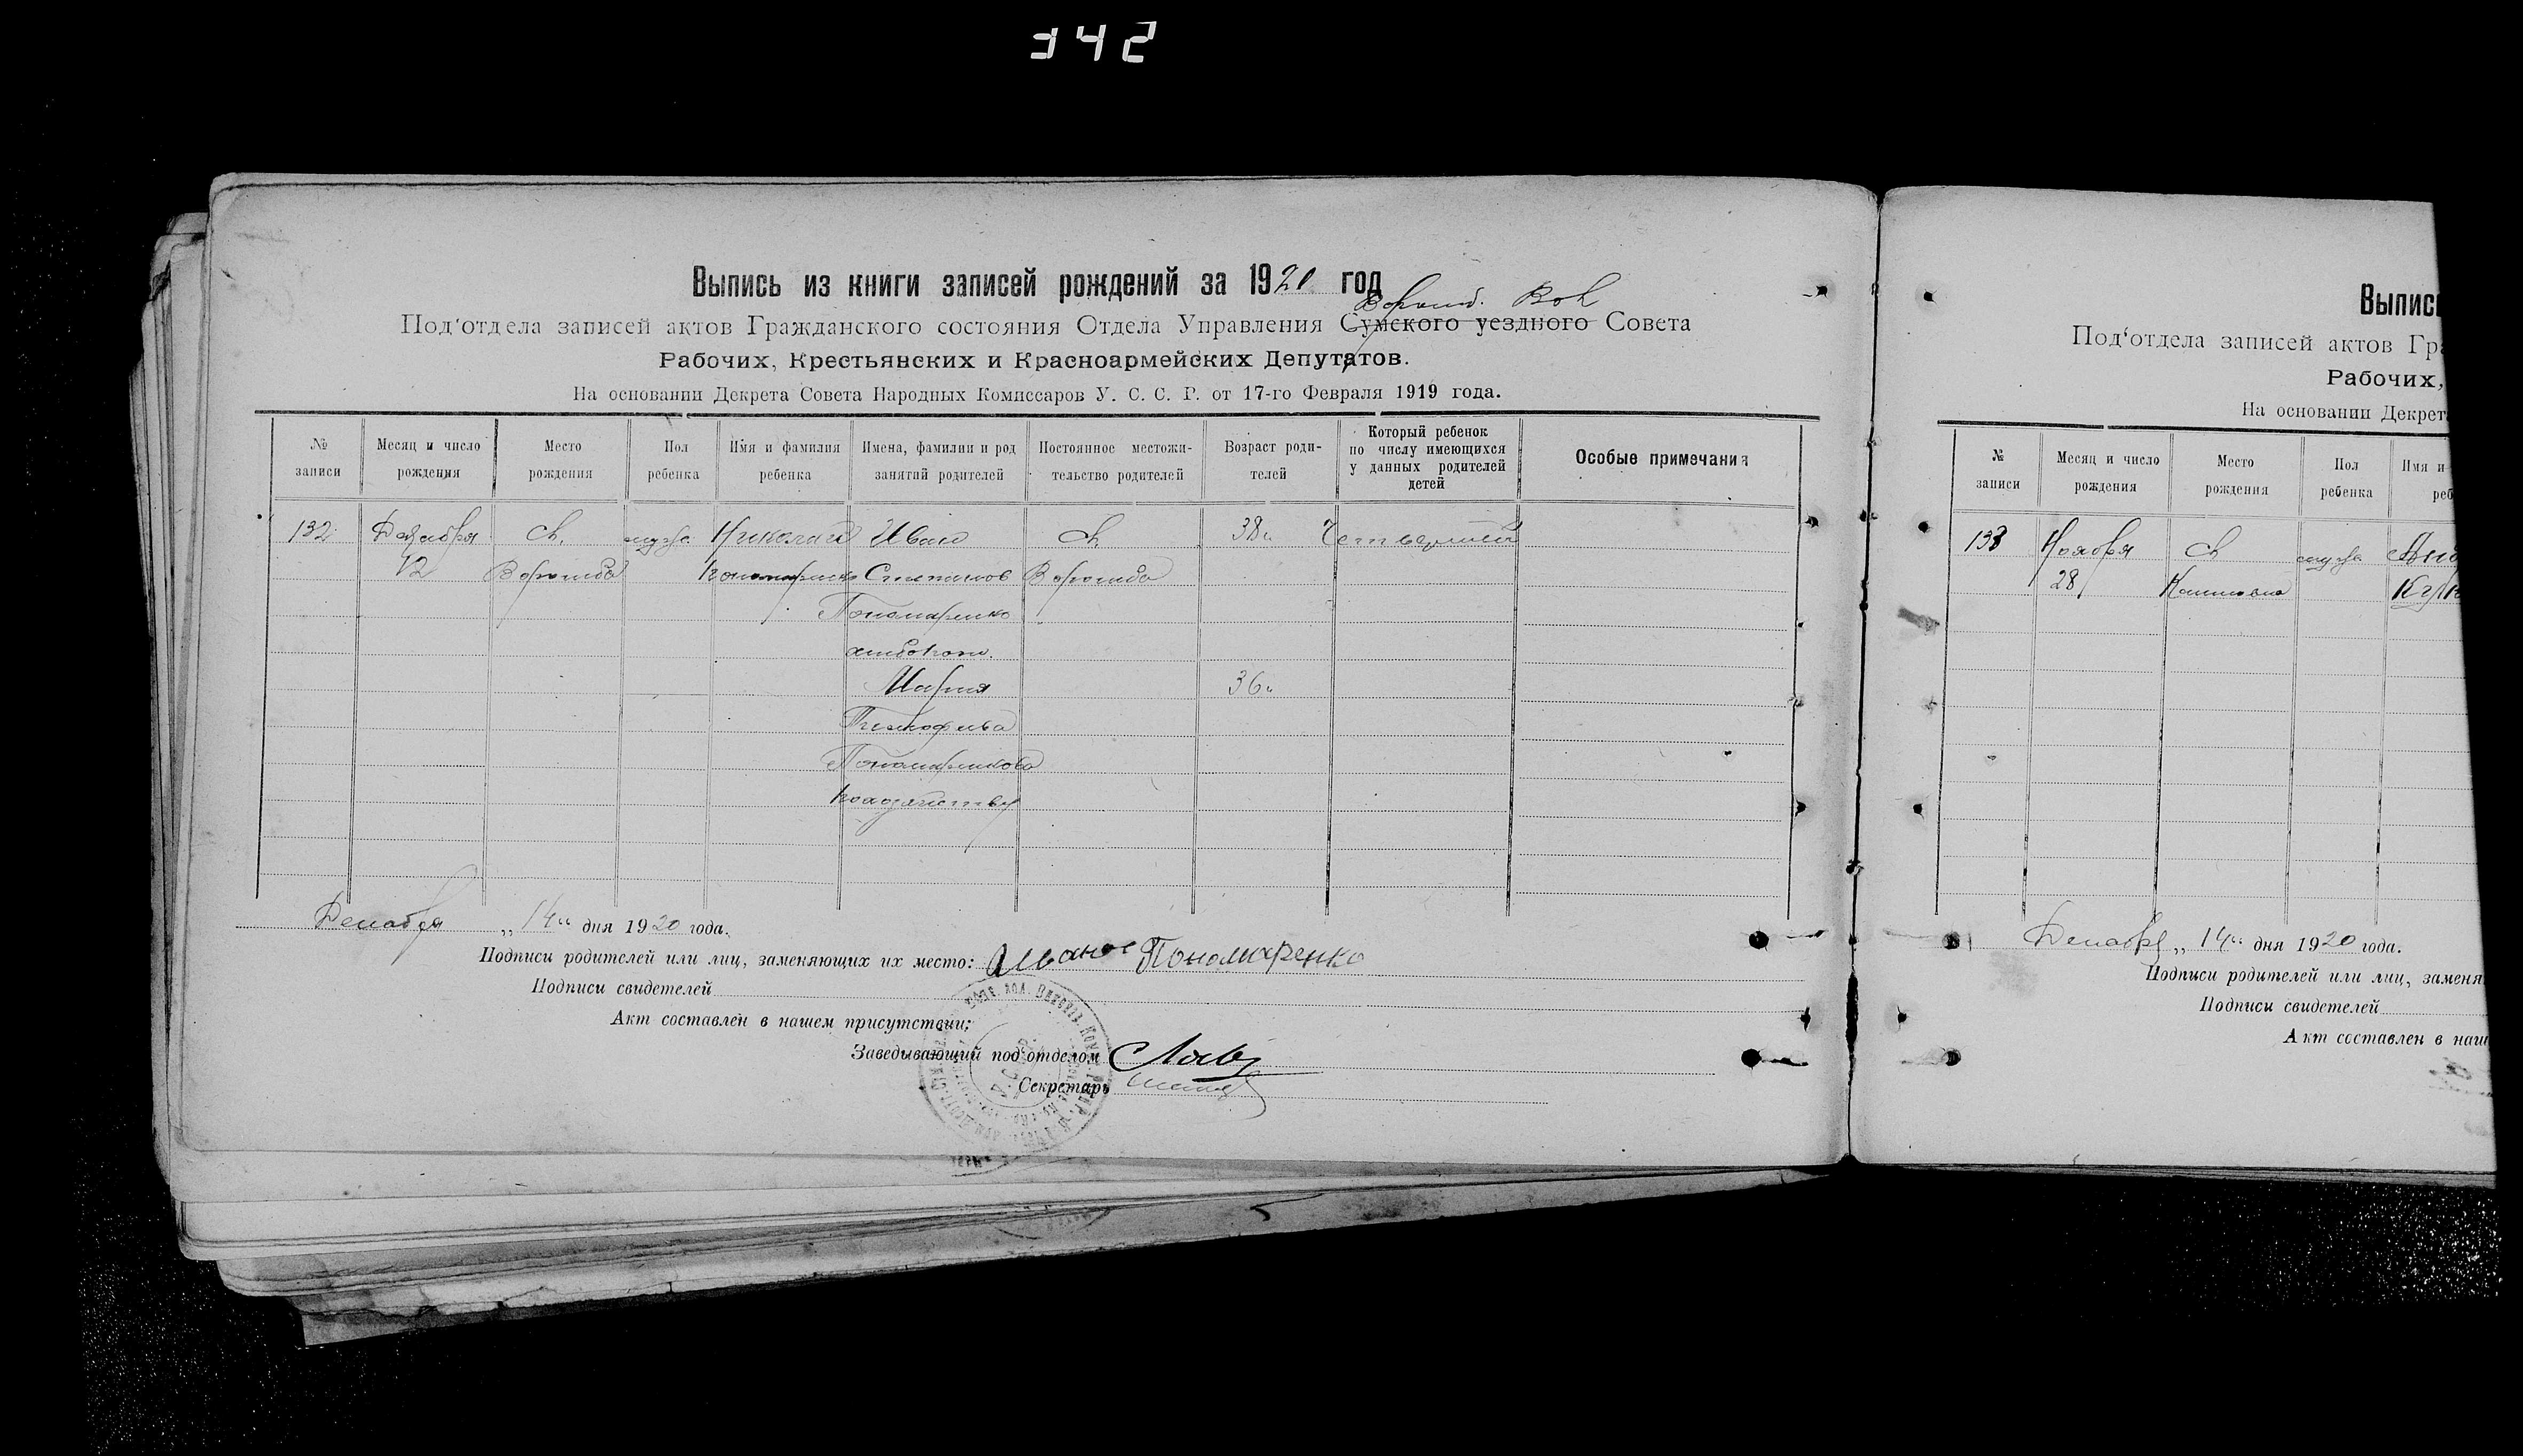 342
Выпись из книги записей рождений за 1920 год
Ворожб. Вол
Под‘отдела записей актов Гражданского состояния Отдела Управления Сумского уездного Совета
Рабочих, Крестьянских и Красноармейских Депутатов.
На основании Декрета Совета Народных Комиссаров У. С. С. Р. от 17-го Февраля 1919 года.
№ записи
Месяц и число рождения
Место рождения
Пол ребенка
Имя и фамилия ребенка
Имена, фамилии и род занятий родителей
Постоянное местожительство родителей
Возраст родителей
Который ребенок по числу имеющихся у данных родителей детей
Особые примечания
132 Декабря с. мужс. Николай Иван с. 38 Четвертый
12 Ворожба Пономаренко Степанов Ворожба
Пономаренко
хлебопаш.
Мария 36
Тимофеева
Пономаренкова
Декабря „14“ дня 1920 года.
Подписи родителей или лиц, заменяющих их место: Пономаренко
Подписи свидетелей
Акт составлен в нашем присутствии:
Заведывающий под‘отделом
Секретарь
Выпис
Под‘отдела записей актов Гра
Рабочих,
На основании Декрет
№ записи
Месяц и число рождения
Место рождения
Пол ребенка
Имя и
реб
133 Ноября с мужс
28
Декабря „14“ дня 1920 года.
Подписи родителей или лиц, заменя
Подписи свидетелей
Акт составлен в наш